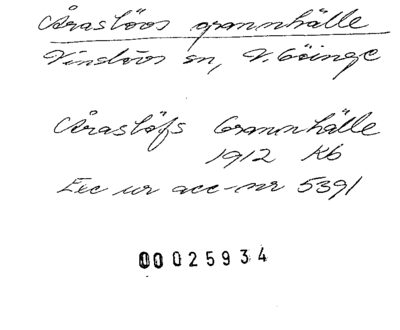 Åraslövs grannhälle
Vinslövs sn, V. Göinge
Åraslöfs Grannhälle
1912 Kb
Exc ur acc-nr 5391
00025934